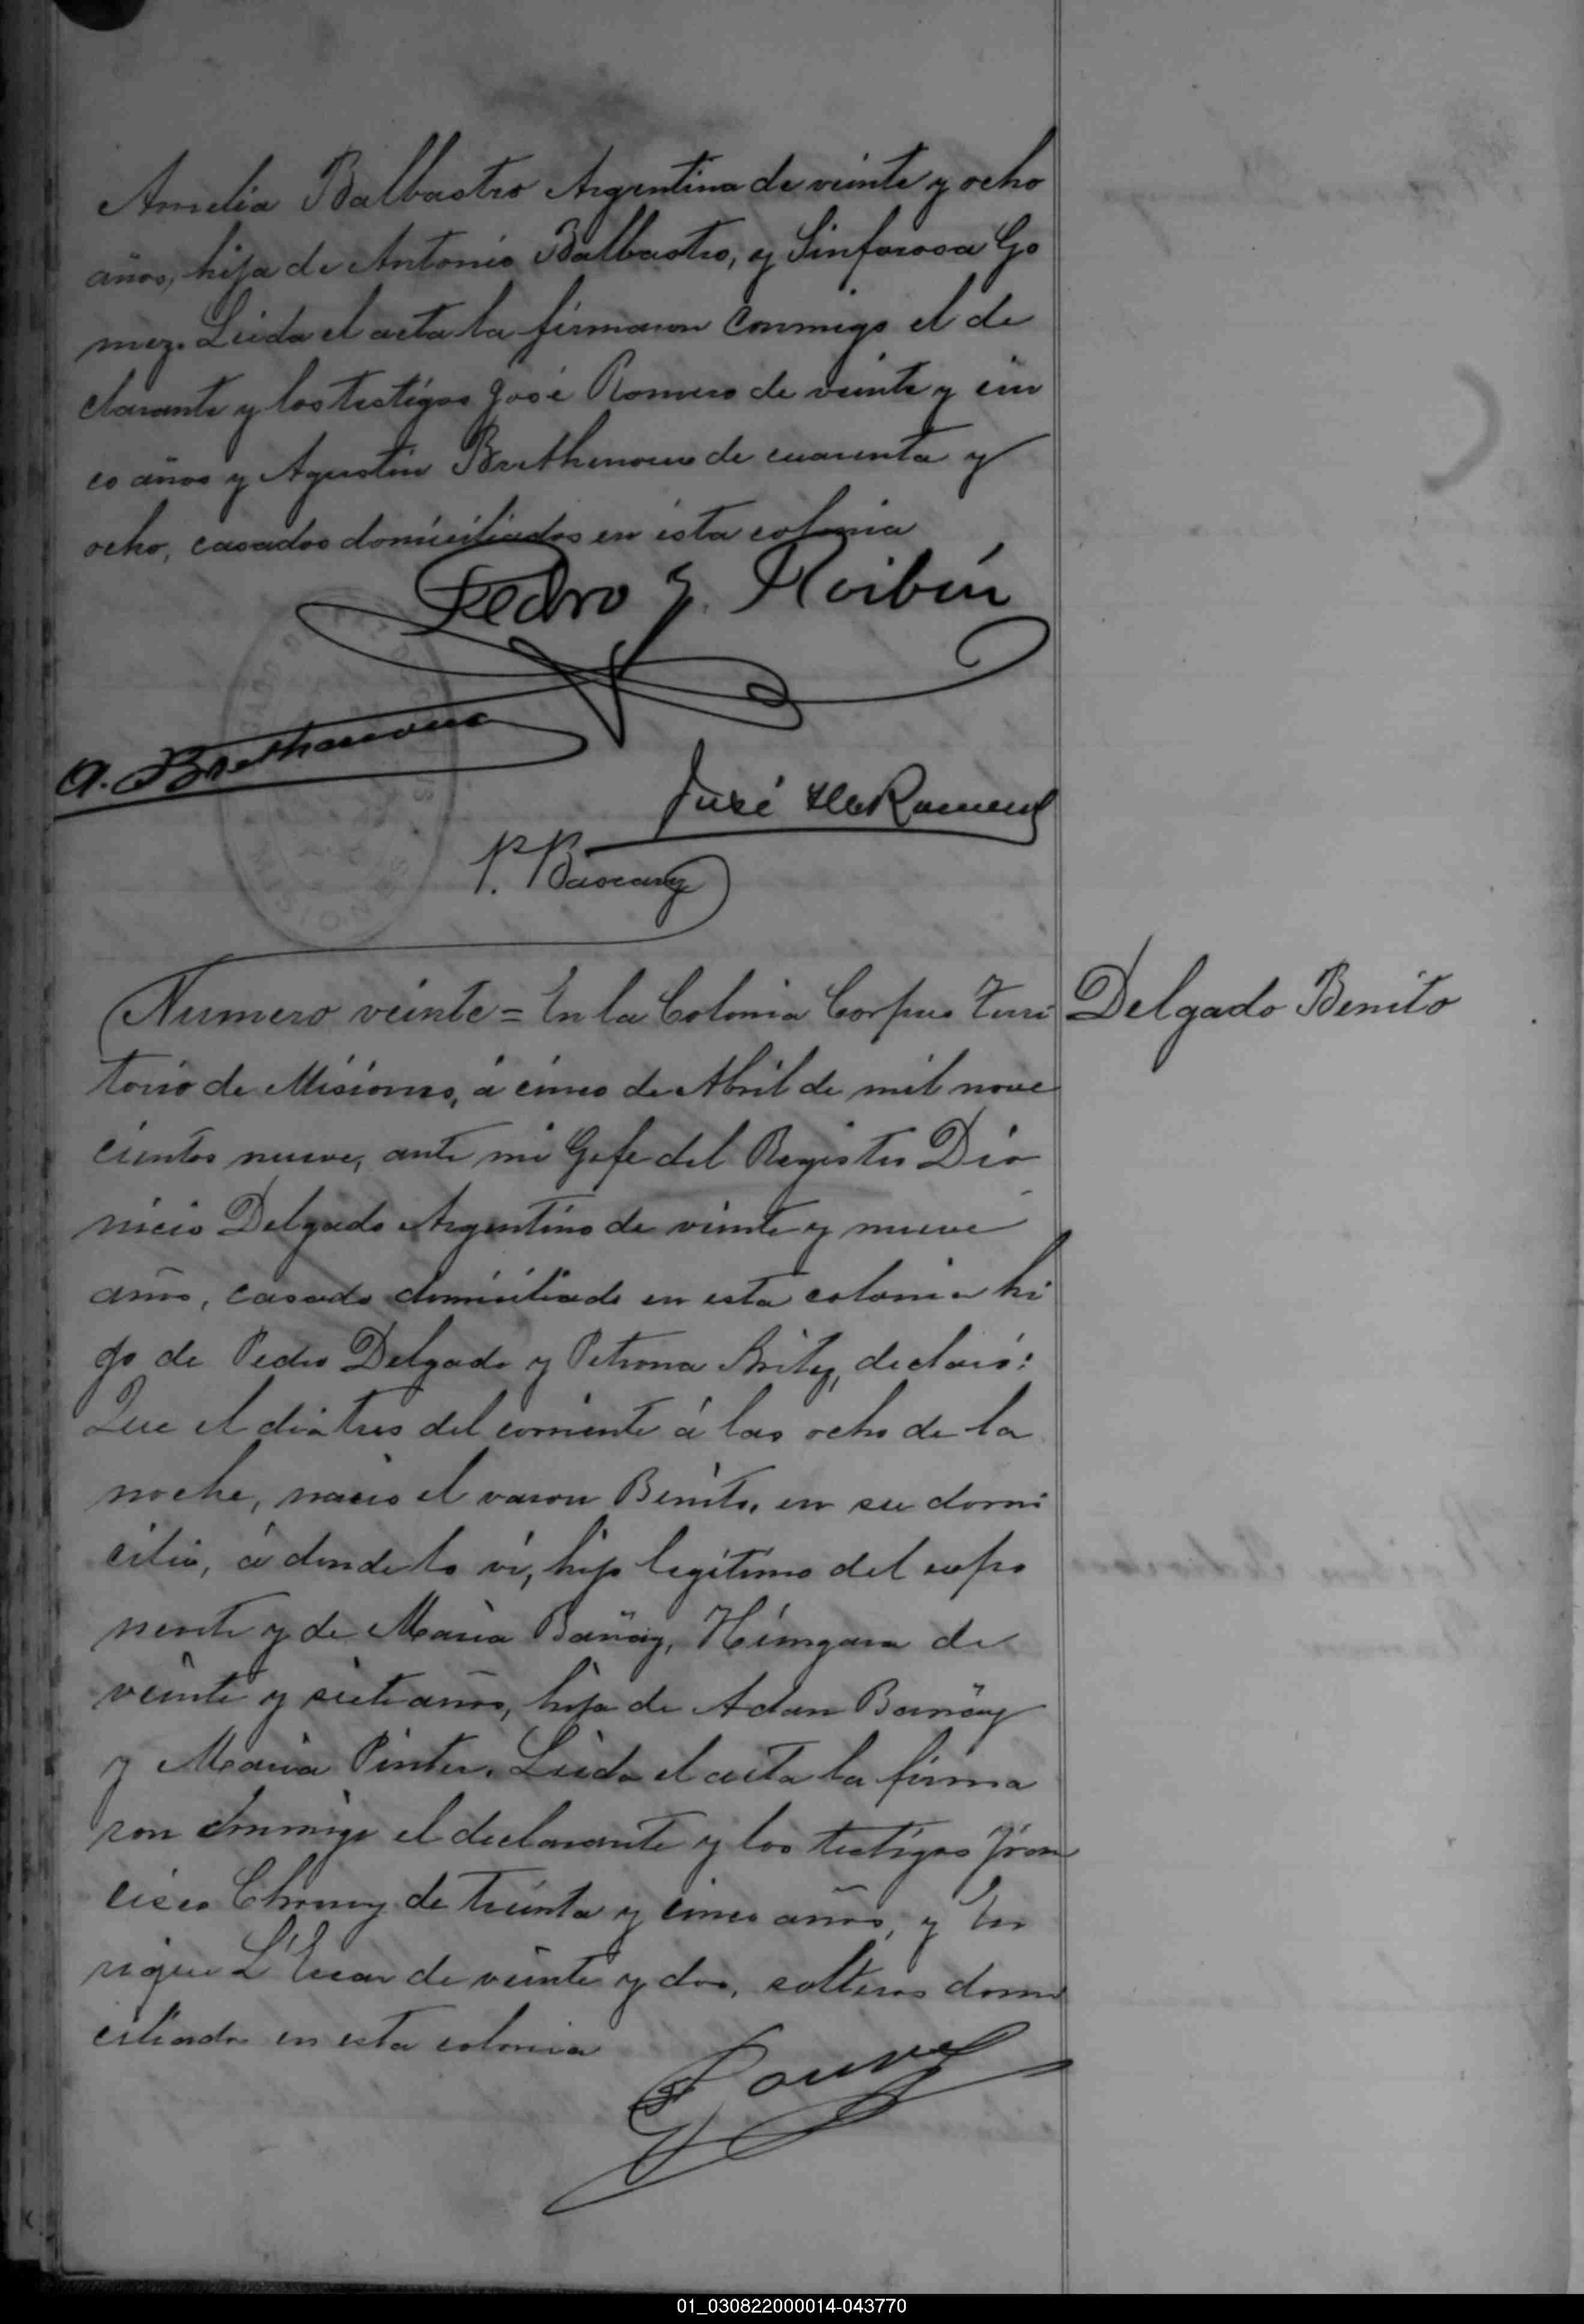 Amelia Balbastro Argentina de veinte y ocho
años, hija de Antonio Balbastro, y Sinforosa Go
mez. Leida el acta la firmaron conmigo el de
clarante y los testigos José Romero de veinte y cin
co años y Agustin Brethenoux de cuarenta y
ocho, casados domiciliados en ésta colonia
Pedro J. Roibón
A. Brethenoux
José
P.
Numero veinte = En la Colonia Corpus Terri
Delgado Benito
torio de Misiones, á cinco de Abril de mil nove
cientos nueve, ante mi Gefe del Registro Dio
nicio Delgado Argentino de veinte y nueve
años, casado domiciliado en esta colonia hi
jo de Pedro Delgado y Petrona Britez, declaró:
Que el dia tres del corriente á las ocho de la
noche, nació el varon Benito, en su domi
cilio, á donde lo ví, hijo legítimo del expo
nente y de Maria Bañay, Húngara de
veinte y siete años, hija de Adan Bañay
y Maria Pinter. Leida el acta la firma
ron conmigo el declarante y los testigos Fran
cisco de treinta y cinco años, y En
rique de veinte y dos, solteros domi
ciliados en esta colonia
01_030822000014-043770